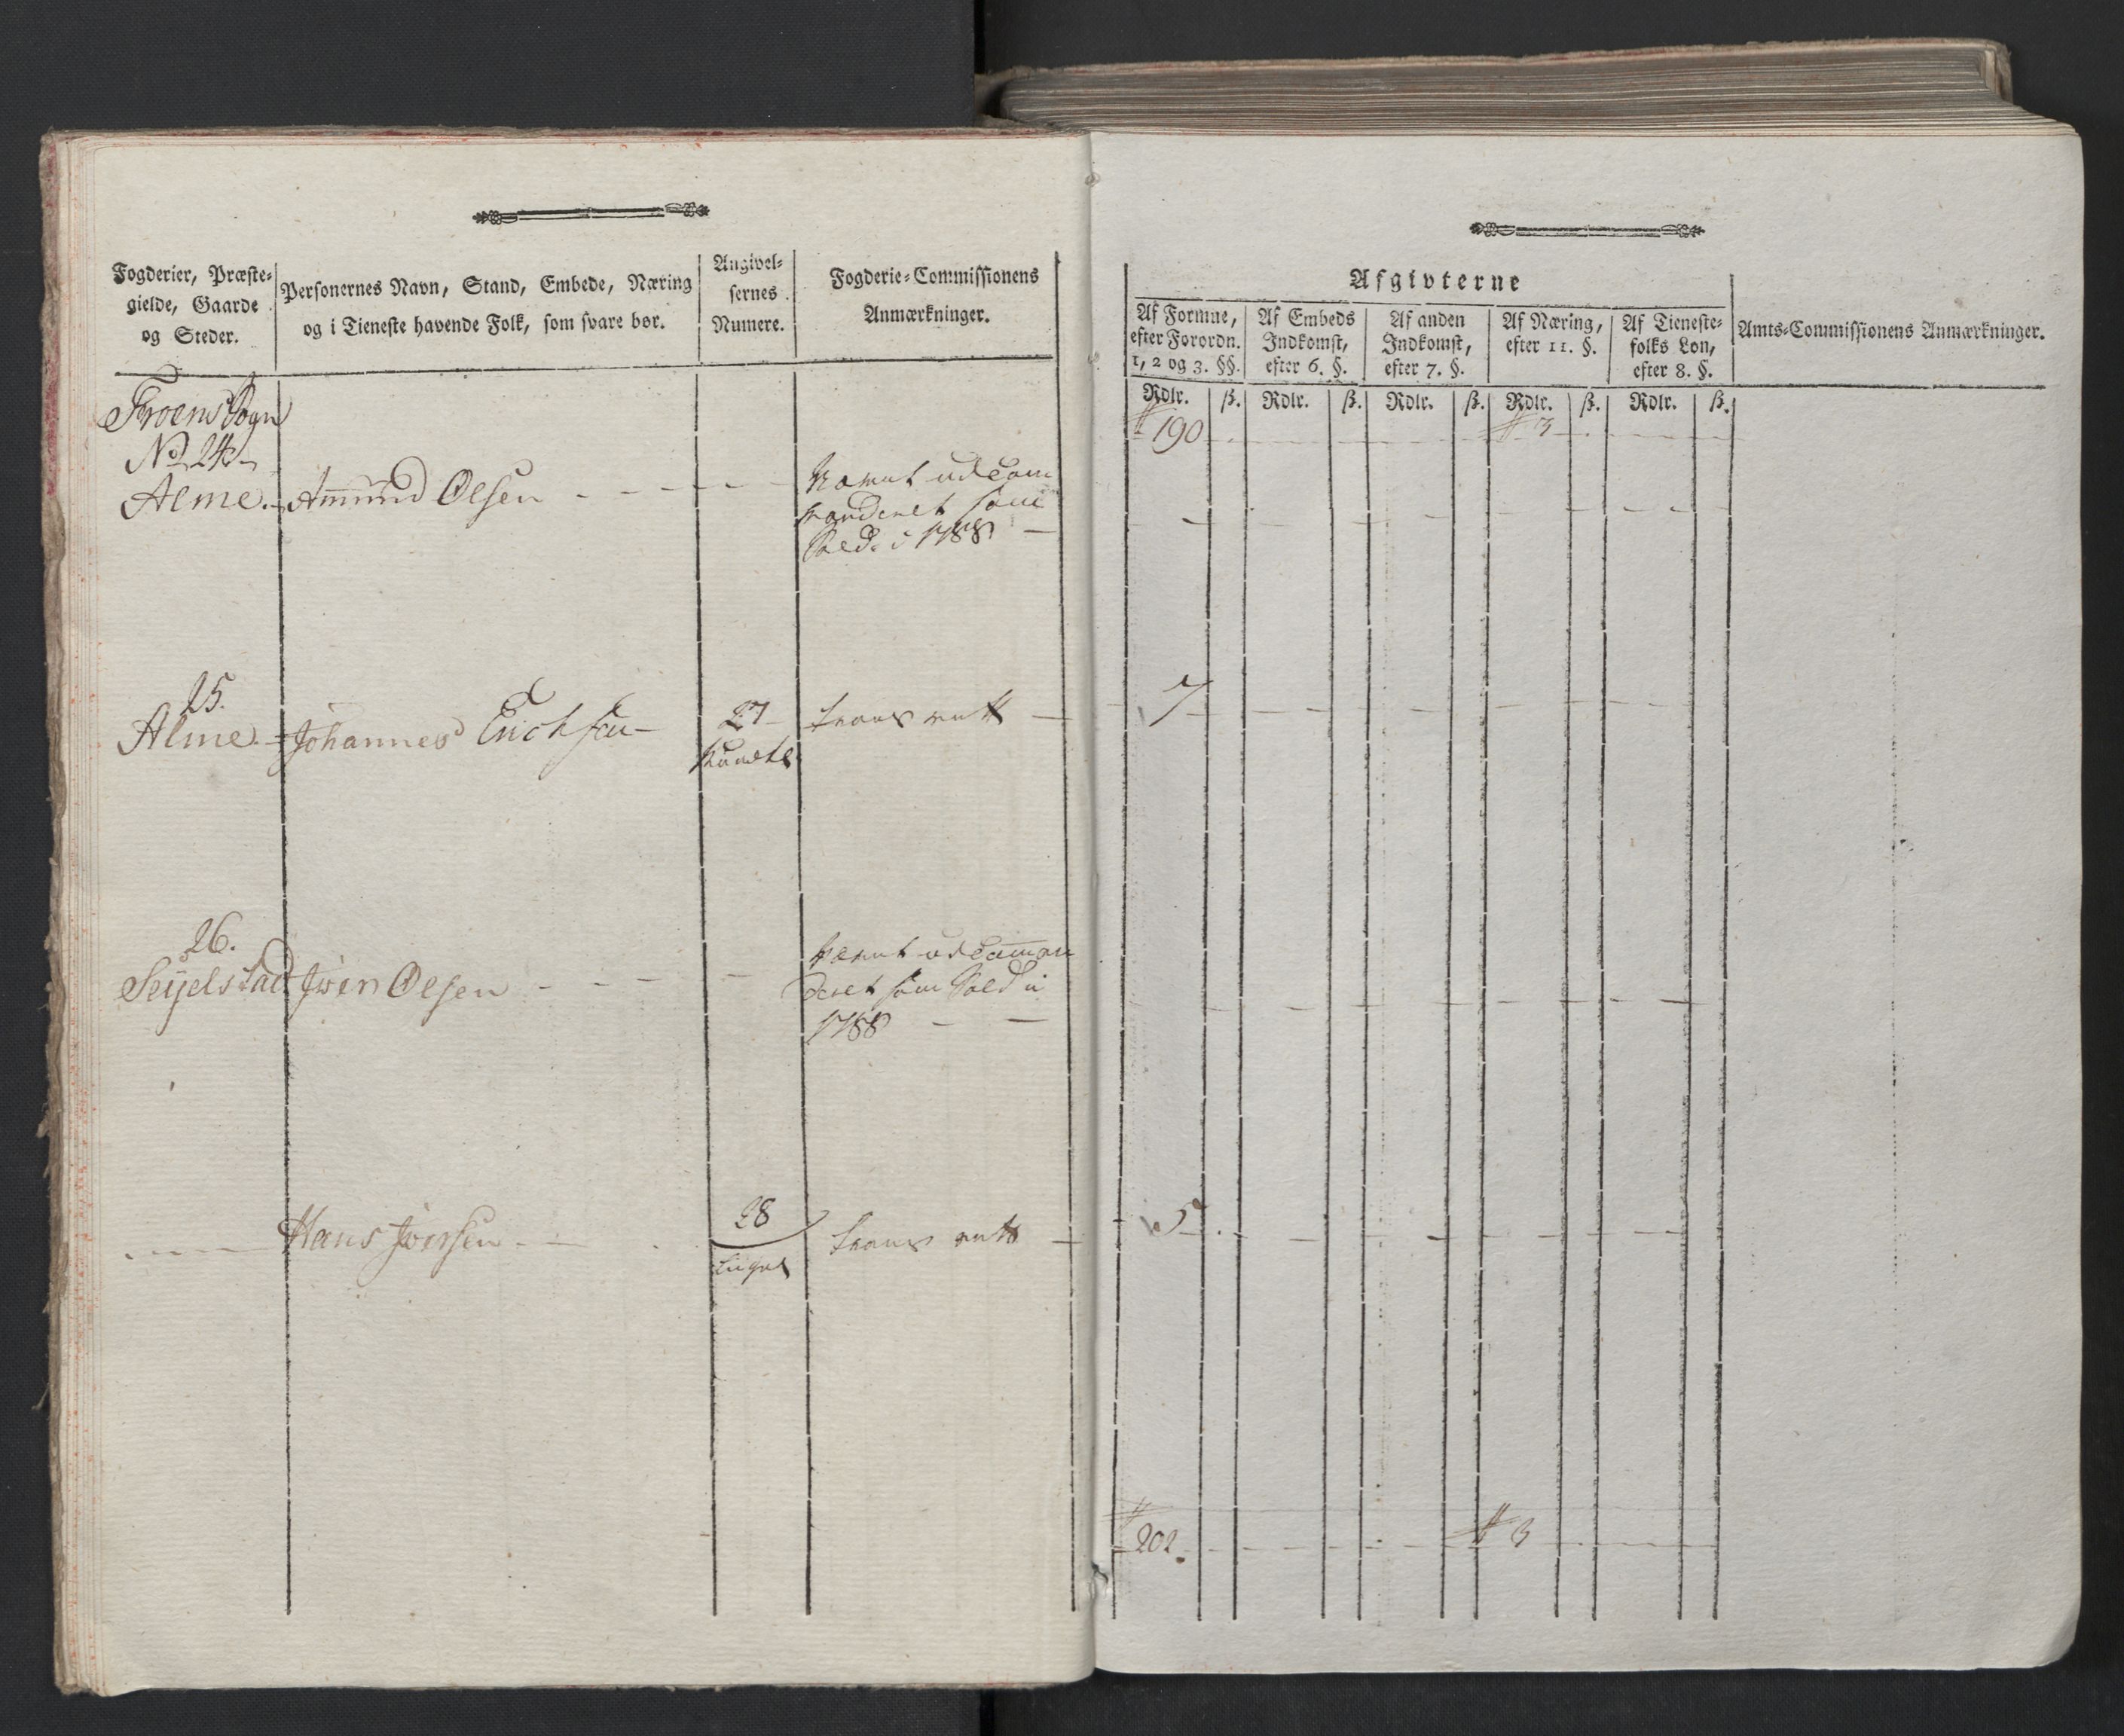 Fogderier, Præste-
gielde, Gaarde
og Steder.
Personernes Navn, Stand, Embede, Næring
og i Tieneste havende Folk, som svare bør.
Angivel-
sernes
Numere.
Fogderie-Commissionens
Anmærkninger.
Froens Sogn
No 24
Alme. Amund Olsen
været udcom
manderet som
Sold. i 1788
25.
Alme. Johannes Erichsen 27
26.
Sejelstad Iver Olsen
været udcomman
deret som Sold i
1788
Hans Iversen 28
Afgivterne
Af Formue,
efter Forordn.
1, 2 og 3. §§.
Af Embeds
Indkomst,
efter 6. §.
Af anden
Indkomst,
efter 7. §.
Af Næring,
efter 11. §.
Af Tieneste-
folks Løn,
efter 8. §.
Amts-Commissionens Anmærkninger.
Rdlr. ß. Rdlr. ß. Rdlr. ß. Rdlr. ß. Rdlr. ß.
190 3
7
5
202 3